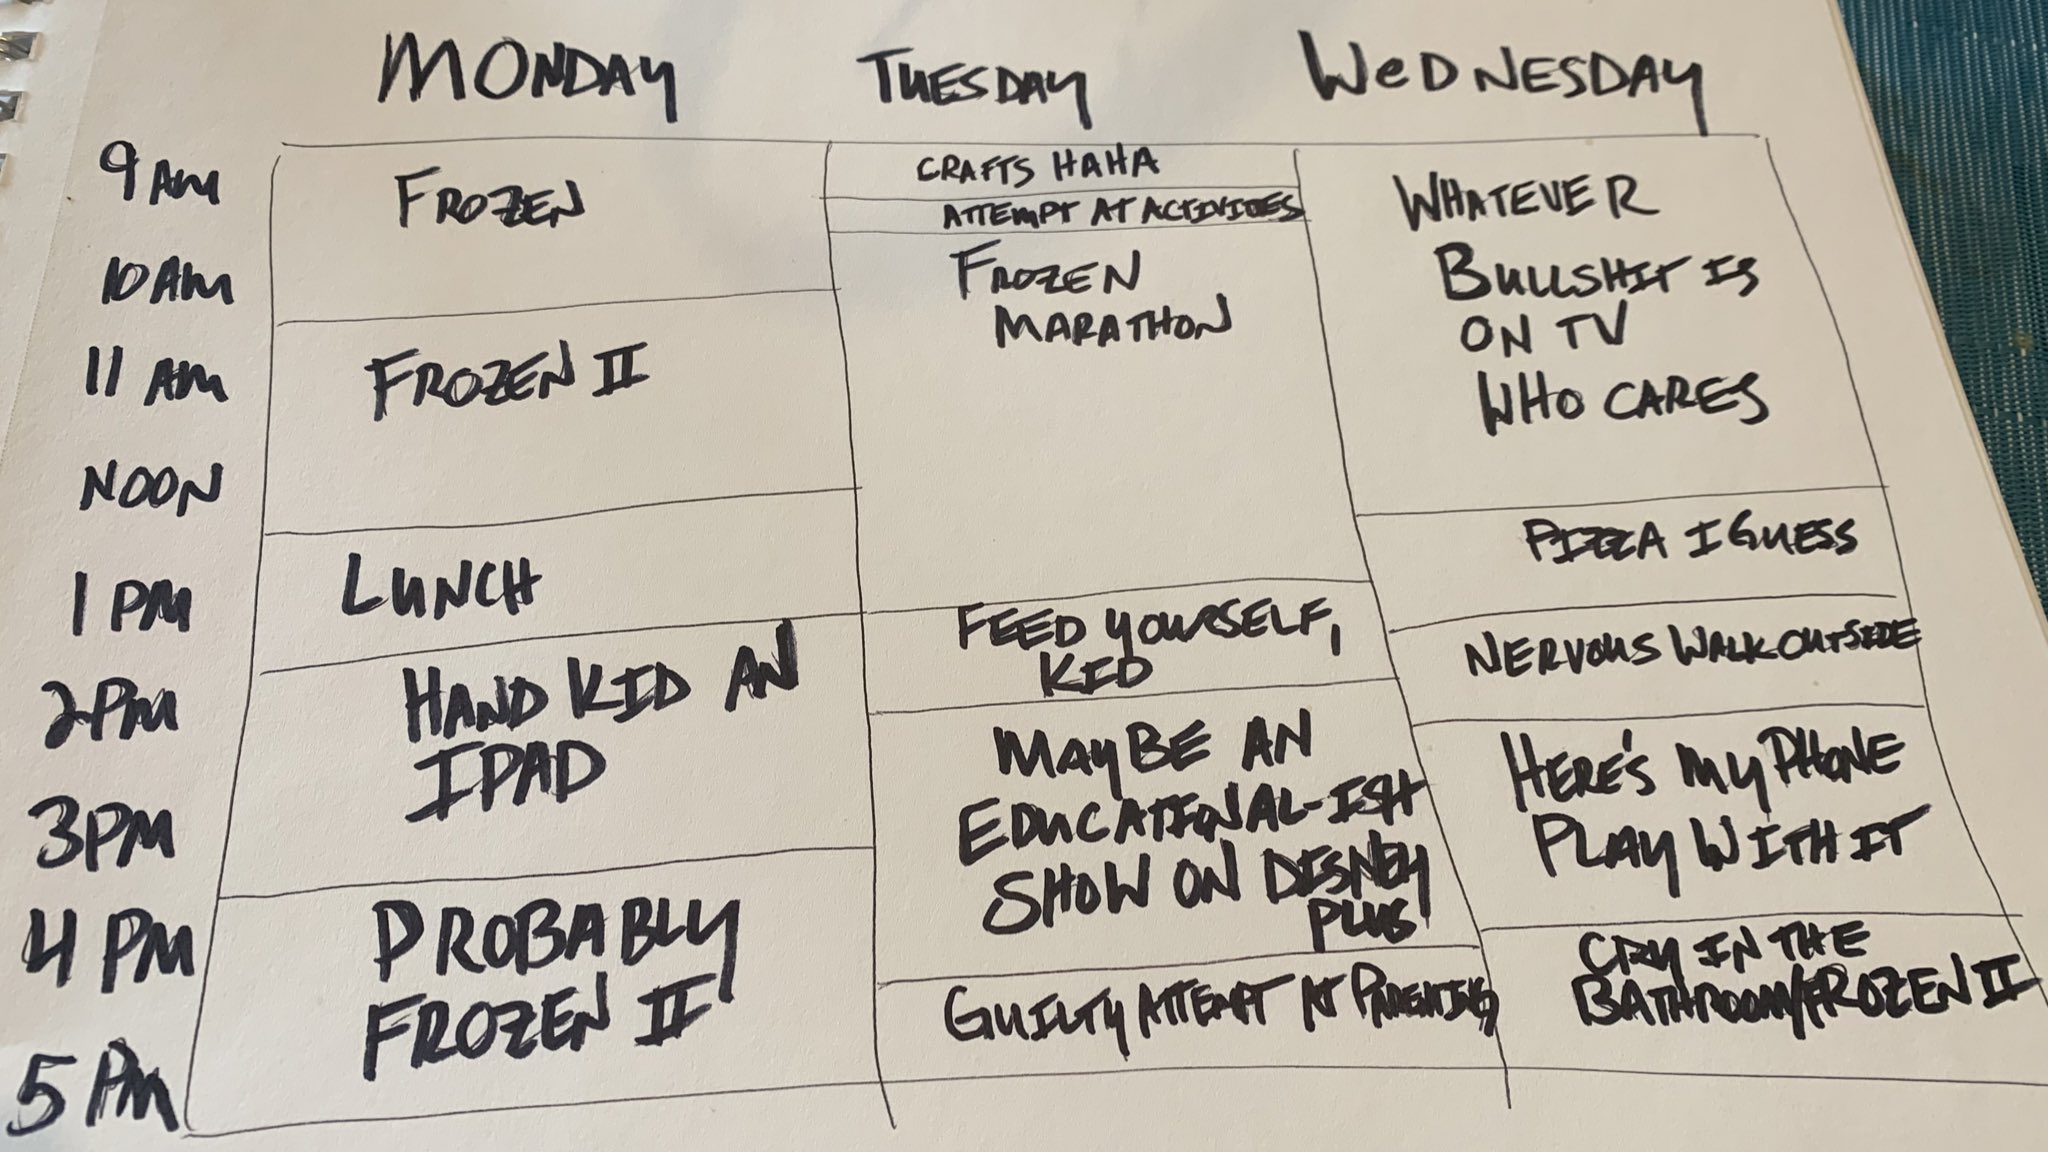 MONDAY TUESDAY WEDNESDAY
9 AM
10 AM
11 AM
NOON
1 PM
2 PM
3 PM
4 PM
5 PM
FROZEN
FROZEN II
LUNCH
HAND KID AN
IPAD
PROBABLY
FROZEN II
CRAFTS HAHA
ATTEMPT AT ACTIVITIES
FROZEN
MARATHON
FEED YOURSELF,
KID
MAYBE AN
EDUCATIONAL-ISH
SHOW ON DISNEY
PLUS
GUILTY ATTEMPT AT PARENTING
WHATEVER
BULLSHIT IS
ON TV
WHO CARES
PIZZA I GUESS
NERVOUS WALK OUTSIDE
HERE'S MY PHONE
PLAY WITH IT
CRY IN THE
BATHROOM/FROZEN II